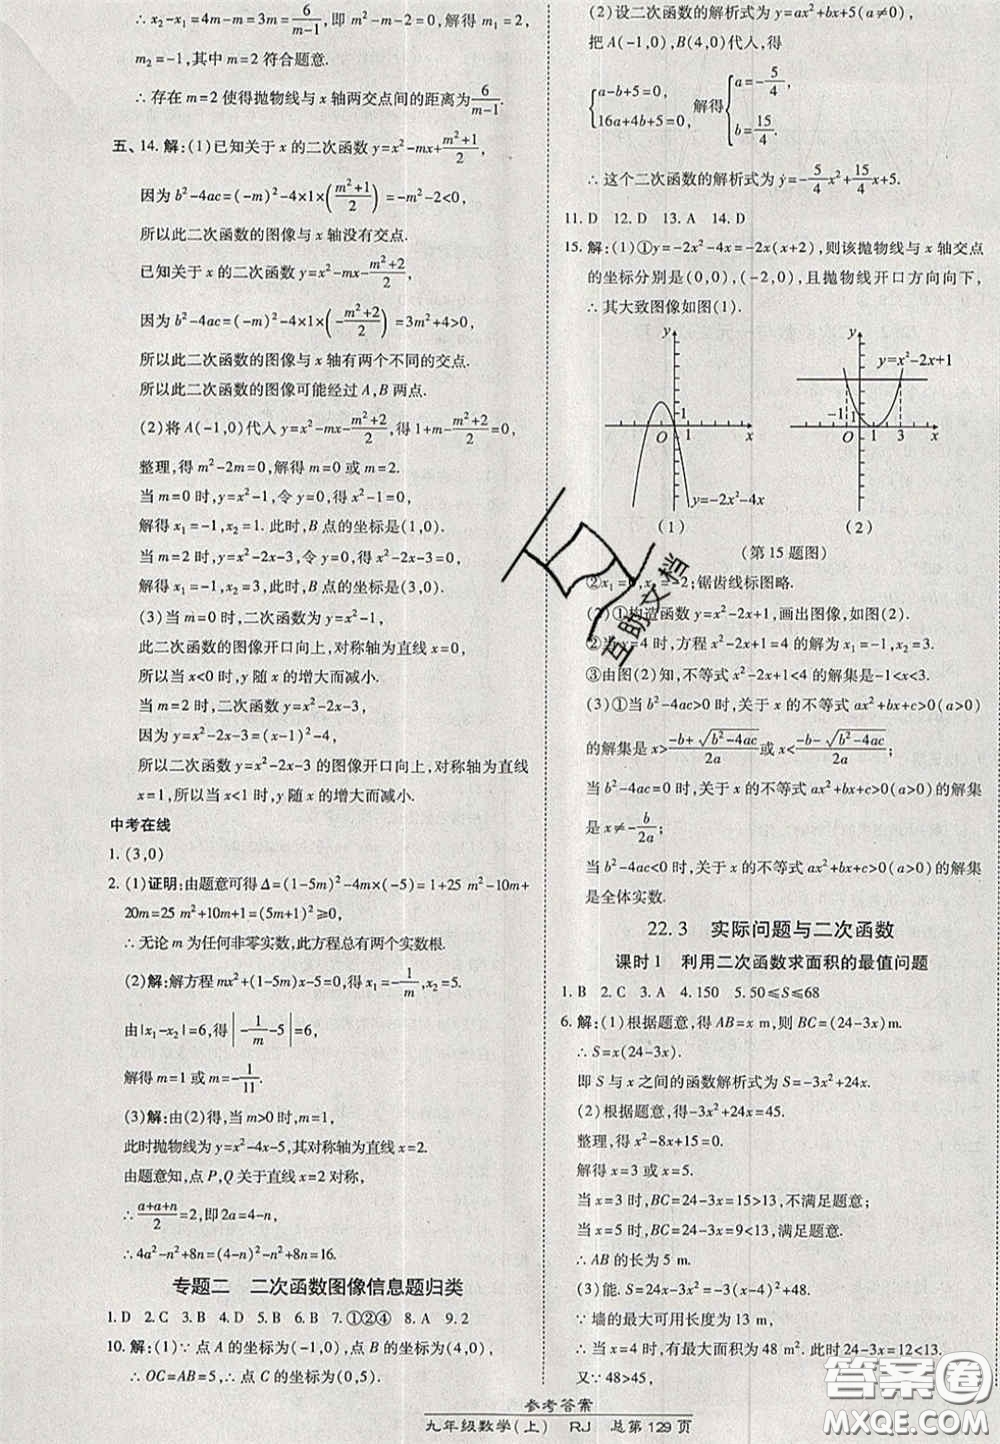 ∴ x₂-x₁=4m-m=3m=6/(m-1),即 m²-m=2,解得 m₁=-1,
m₂=2,其中 m=2 符合题意.
∴ 存在 m=2 使得抛物线与 x 轴两交点间的距离为 6/(m-1).
五、14. 解:(1)已知关于 x 的二次函数 y=x²-mx+(m²+1)/2,
因为 b²-4ac=(-m)²-4×1×((m²+1)/2)=-m²-2<0,
所以此二次函数的图像与 x 轴没有交点.
已知关于 x 的二次函数 y=x²-mx-(m²+2)/2,
因为 b²-4ac=(-m)²-4×1×(-(m²+2)/2)=3m²+4>0,
所以此二次函数的图像与 x 轴有两个不同的交点.
所以此二次函数的图像可能经过 A,B 两点.
(2)将 A(-1,0)代入 y=x²-mx-(m²+2)/2,得 1+m-(m²+2)/2=0,
整理,得 m²-2m=0,解得 m=0 或 m=2.
当 m=0 时,y=x²-1,令 y=0,得 x²-1=0.
解得 x₁=-1,x₂=1. 此时,B 点的坐标是(1,0).
当 m=2 时,y=x²-2x-3,令 y=0,得 x²-2x-3=0.
解得 x₁=-1,x₂=3. 此时,B 点的坐标是(3,0).
(3)当 m=0 时,二次函数为 y=x²-1,
此二次函数的图像开口向上,对称轴为直线 x=0,
所以当 x<0 时,y 随 x 的增大而减小.
当 m=2 时,二次函数为 y=x²-2x-3,
因为 y=x²-2x-3=(x-1)²-4,
所以二次函数 y=x²-2x-3 的图像开口向上,对称轴为直线
x=1,所以当 x<1 时,y 随 x 的增大而减小.
中考在线
1. (3,0)
2. (1)证明:由题意可得 Δ=(1-5m)²-4m×(-5)=1+25 m²-10m+
20m=25 m²+10m+1=(5m+1)²≥0,
∴ 无论 m 为任何非零实数,此方程总有两个实数根.
(2)解:解方程 mx²+(1-5m)x-5=0,得 x₁=-1/m,x₂=5.
由|x₁-x₂|=6,得|-1/m-5|=6,
解得 m=1 或 m=-1/11.
(3)解:由(2)得,当 m>0 时,m=1,
此时抛物线为 y=x²-4x-5,其对称轴为直线 x=2.
由题意知,点 P,Q 关于直线 x=2 对称,
∴(a+a+n)/2=2,即 2a=4-n,
∴4a²-n²+8n=(4-n)²-n²+8n=16.
专题二 二次函数图像信息题归类
1. D 2. C 3. B 4. D 5. B 6. B 7. ①②④ 8. A 9. 2
10. 解:(1)∵ 点 A 的坐标为(-1,0),点 B 的坐标为(4,0),
∴ OC=AB=5,∴点 C 的坐标为(0,5).
(2)设二次函数的解析式为 y=ax²+bx+5(a≠0),
把 A(-1,0),B(4,0)代入,得
{a-b+5=0, 16a+4b+5=0, 解得{a=-5/4, b=15/4.
∴ 这个二次函数的解析式为 y=-5/4x²+15/4x+5.
11. D 12. D 13. A 14. D
15. 解:(1)①y=-2x²-4x=-2x(x+2),则该抛物线与 x 轴交点
的坐标分别是(0,0),(-2,0),且抛物线开口方向向下,
∴ 其大致图像如图(1).
y
1
O 1 x
y=-2x²-4x
(1)
y
y=x²-2x+1
-1 1
O 3 x
(2)
(第 15 题图)
②x₁=0,x₂=-2;锯齿线标图略.
(2)①构造函数 y=x²-2x+1,画出图像,如图(2).
②当 y=4 时,方程 x²-2x+1=4 的解为 x=-1或x=3.
③由图(2)知,不等式 x²-2x+1<4 的解集是-1<x<3.
(3)①当 b²-4ac>0 时,关于 x 的不等式 ax²+bx+c>0(a>0)
的解集是 x>(-b+√(b²-4ac))/2a 或 x<(-b-√(b²-4ac))/2a.
当 b²-4ac=0 时,关于 x 的不等式 ax²+bx+c>0(a>0)的解集
是 x≠-b/2a.
当 b²-4ac<0 时,关于 x 的不等式 ax²+bx+c>0(a>0)的解集
是全体实数.
22.3 实际问题与二次函数
课时 1 利用二次函数求面积的最值问题
1. B 2. C 3. A 4. 150 5. 50≤S≤68
6. 解:(1)根据题意,得 AB=x m,则 BC=(24-3x)m.
∴ S=x(24-3x).
即 S 与 x 之间的函数解析式为 S=-3x²+24x.
(2)根据题意,得-3x²+24x=45.
整理,得 x²-8x+15=0.
解得 x=3 或 x=5.
当 x=3 时,BC=24-3x=15>13,不满足题意;
当 x=5 时,BC=24-3x=9<13,满足题意.
∴ AB 的长为 5 m.
(3)能. S=24x-3x²=-3(x-4)²+48.
∵ 墙的最大可用长度为 13 m,
∴ 当 x=4 时,有最大面积为 48 m². 此时 24-3x=12<13.
又∵ 48>45,
互助文档
答案圈
MXQE.COM
参考答案
九年级数学(上) RJ 总第 129 页